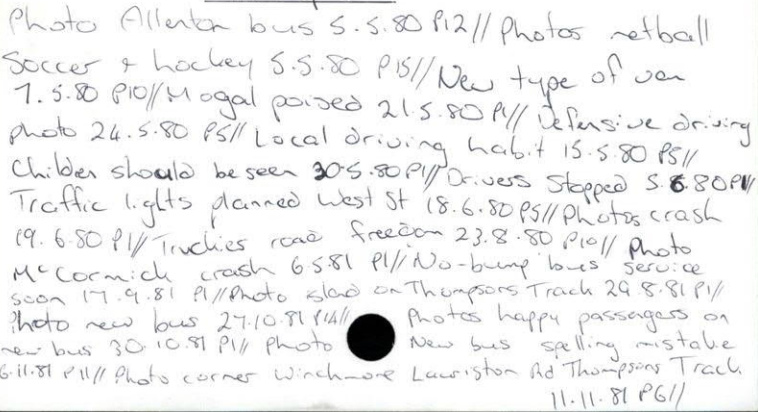 Photo Allenton bus 5.5.80 P12// Photos netball
Soccer + hockey 5.5.80 P15// New type of van
7.5.80 P10// Mogal poised 21.5.80 P1// Defensive driving
photo 24.5.80 P5// Local driving habit 15.5.80 P5//
Childen should be seen 30.5.80 P1// Drivers Stopped 5.6.80 P1//
Traffic lights planned West St 18.6.80 P5// Photos crash
19.6.80 P1// Truckies road freedom 23.8.80 P10// Photo
McCormick crash 6.5.81 P1// No-bump bus service
soon 17.9.81 P1// Photo island on Thompsons Track 29.8.81 P1//
Photo new bus 27.10.81 P14// Photos happy passagers on
new bus 30.10.81 P1// Photo New bus spelling mistake
6.11.81 P11// Photo corner Winchmore Lauriston Rd Thompsons Track
11.11.81 P6//